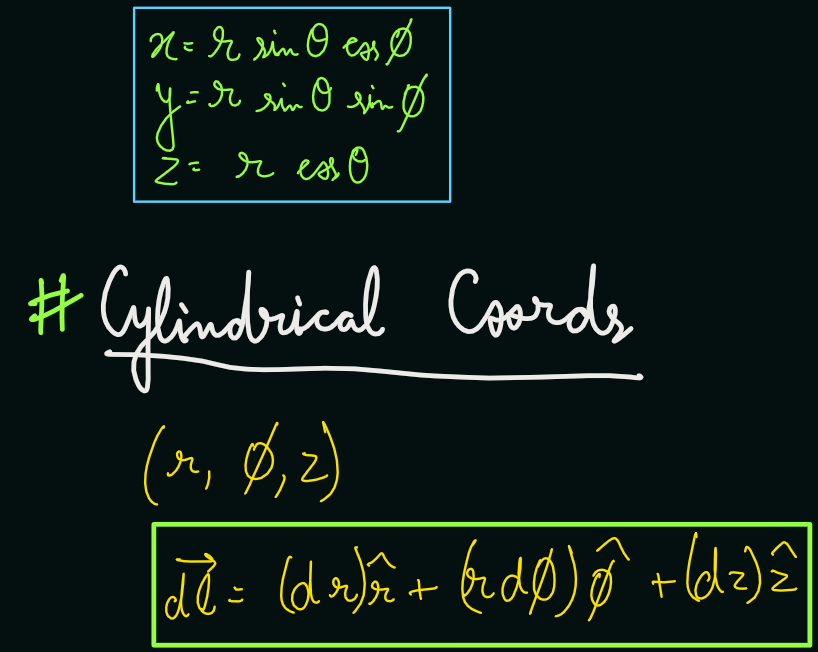 x = r sin θ cos ϕ
y = r sin θ sin ϕ
z = r cos θ
# Cylindrical Coords
(r, ϕ, z)
d\vec{l} = (dr) r̂ + (r dϕ) ϕ̂ + (dz) ẑ